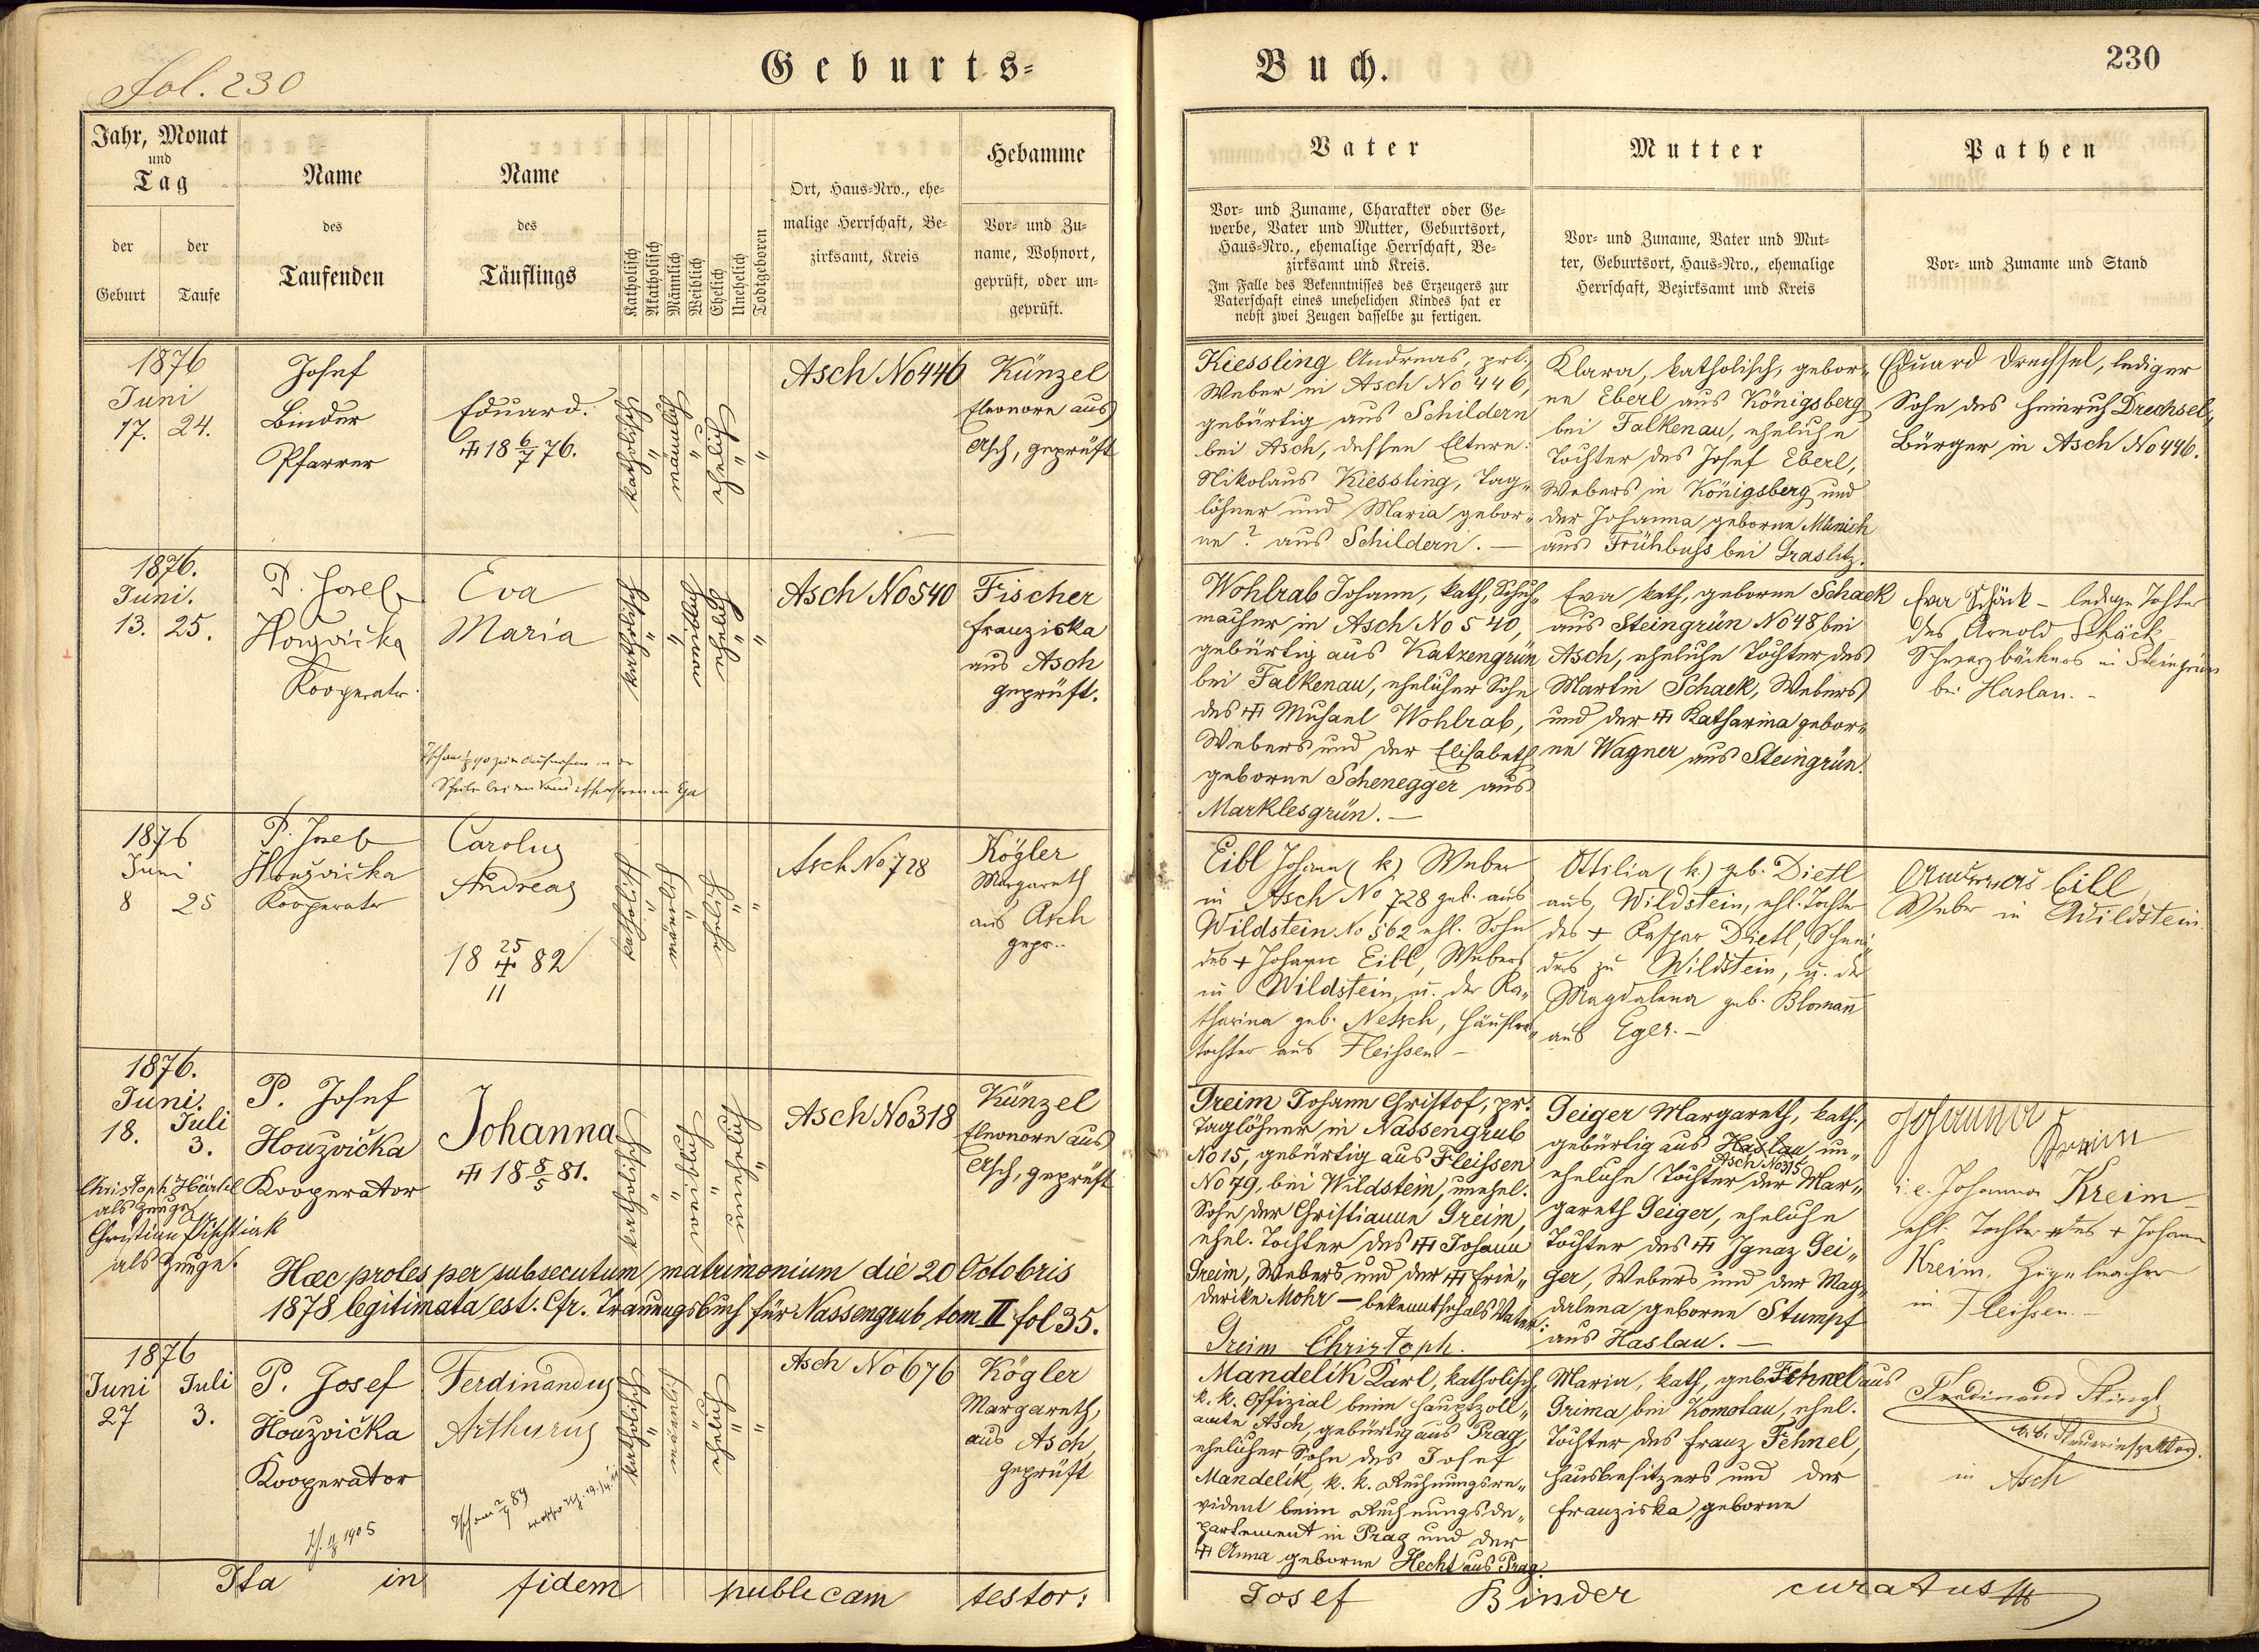 Fol. 230
Geburts=
Jahr, Monat
und
Tag
der
Geburt
der
Taufe
Name
des
Taufenden
Name
des
Täuflings
Katholisch
Akatholisch
Männlich
Weiblich
Ehelich
Unehelich
Todtgeboren
Ort, Haus=Nro., ehe=
malige Herrschaft, Be=
zirksamt, Kreis
Hebamme
Vor= und Zu=
name, Wohnort,
geprüft, oder un=
geprüft.
1876
Juni
17. 24.
Josef
Binder
Pfarrer
Eduard.
18 6/7 76.
katholisch
ehelich
Asch No 446
Künzel
Eleonore aus
Asch, geprüft
1876.
Juni.
13. 25.
P. Josef
Houzvička
Kooperator
Eva
Maria
katholisch
Asch No 540
Fischer
Franziska
aus Asch
geprüft.
1876
Juni
8 25
P. Josef
Houzvička
Kooperator
Carolus
Andreas
18 25/11 82
katholisch
ehelich
Asch No 728
Kögler
Margareth
aus Asch
gepr..
1876.
Juni. Juli
18. 3.
Christoph Härtel
als Zeuge
Christian Pischtiak
als Zeuge.
P. Josef
Houzvička
Kooperator
Johanna
18 8/5 81.
katholisch
Asch No 318
Künzel
Eleonore aus
Asch, geprüft
Hæc proles per subsecutum matrimonium die 20 Octobris
1878 legitimata est. Cfr. Trauungsbuch für Nassengrub tom II fol 35.
1876
Juni Juli
27 3.
P. Josef
Houzvička
Kooperator
Ferdinandus
Arthurus
katholisch
ehelich
Asch No 676
Kögler
Margareth,
aus Asch,
geprüft
1905
Ita in fidem publicam testor:
Buch.
230
Vater
Vor= und Zuname, Charakter oder Ge=
werbe, Vater und Mutter, Geburtsort,
Haus=Nro., ehemalige Herrschaft, Be=
zirksamt und Kreis.
Im Falle des Bekenntnisses des Erzeugers zur
Vaterschaft eines unehelichen Kindes hat er
nebst zwei Zeugen dasselbe zu fertigen.
Mutter
Vor= und Zuname, Vater und Mut=
ter, Geburtsort, Haus=Nro., ehemalige
Herrschaft, Bezirksamt und Kreis
Pathen
Vor= und Zuname und Stand
Kiessling Andreas, prt.
Weber in Asch No 446,
gebürtig aus Schildern
bei Asch, dessen Eltern:
Nikolaus Kiessling, Tag„
löhner und Maria gebor„
ne ? aus Schildern. —
Klara, katholisch, gebor„
ne Eberl aus Königsberg
bei Falkenau, eheliche
Tochter des Josef Eberl,
Webers in Königsberg und
der Johanna geborne Münich
aus Frühbuss bei Graslitz.
Eduard Drechsel, lediger
Sohn des Heinrich Drechsel,
Bürger in Asch No 446.
Wohlrab Johann, kath, Schuh„
macher in Asch No 540,
gebürtig aus Katzengrün
bei Falkenau, ehelicher Sohn
des Michael Wohlrab,
Webers und der Elisabeth
geborne Schenegger aus
Marklesgrün. —
Eva kath, geborne Schaek
aus Steingrün No 48 bei
Asch, eheliche Tochter des
Martin Schaek, Webers
und der Katharina gebor„
ne Wagner aus Steingrün.
Eva Schäck - ledige Tochter
des Arnold Schäck
Schwarzbäckers in Steingrün
bei Haslau. -
Eibl Johann (k) Weber
in Asch No 728 geb. aus
Wildstein No 562 ehl. Sohn
des + Johann Eibl, Webers
in Wildstein, u. der Ka„
tharina geb. Netsch, Häusler„
tochter aus Fleissen -
Ottilia (k) geb. Dietl
aus Wildstein, ehl. Tochter
des + Kaspar Dietl, Schnei„
ders zu Wildstein, u. der
Magdalena geb. Blomann
aus Eger. -
Andreas Eibl
Weber in Wildstein.
Greim Johann Christof, pr.
Taglöhner in Nassengrub
No 15, gebürtig aus Fleissen
No 79, bei Wildstein, unehel.
Sohn der Christianne Greim,
ehel. Tochter des Johann
Greim, Webers und der Frie„
derike Mohr — bekennt sich als Vater:
Greim Christoph.
Geiger Margareth, kath.,
gebürtig aus Haslau, un„
Asch No 315
eheliche Tochter der Mar„
gareth Geiger, eheliche
Tochter des Ignaz Gei„
ger, Webers und der Mag„
dalena geborne Stumpf
aus Haslau. —
Johanna
Kreim
i. e. Johanna Kreim
ehl. Tochter des + Johann
Kreim,
in Fleissen. -
Mandelík Karl, katholisch,
k. k. Offizial beim Hauptzoll„
amte Asch, gebürtig aus Prag,
ehelicher Sohn des Josef
Mandelík, k. k. Rechnungsre„
vident beim Rechnungsde„
partement in Prag und der
Anna geborne Hecht aus Prag.
Maria, kath, geb. Fehnel aus
Grima bei Komotau, ehel.
Tochter des Franz Fehnel,
Hausbesitzers und der
Franziska geborne
Ferdinand Stingl
k. k. Steuerinspektor.
in Asch
Josef Binder curatus